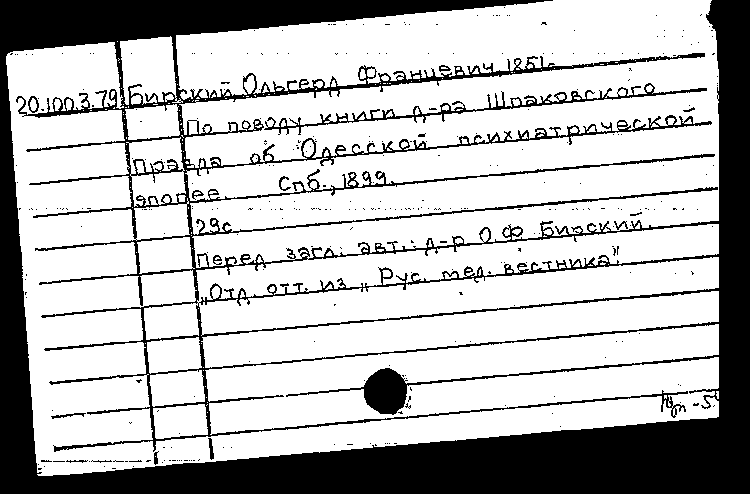 20.100.3.79 Бирский, Ольгерд Францевич, 1851-
По поводу книги д-ра Шпаковского
Правда об Одесской психиатрической
эпопее. Спб., 1899.
29с
Перед загл. авт.: д-р О.Ф Бирский.
„Отд. отт. из „Рус. мед. вестника".